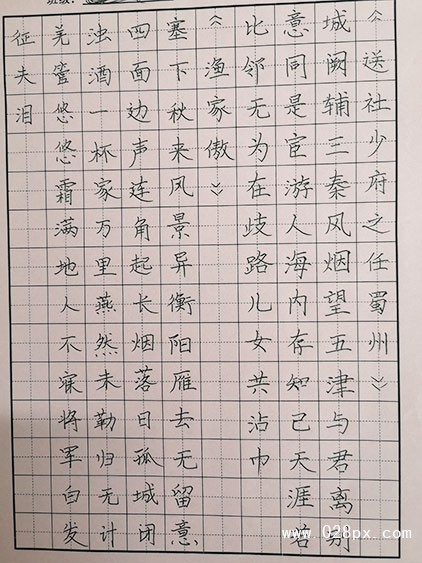 班级:
《送社少府之任蜀州》
城阙辅三秦风烟望五津与君离别
意同是宦游人海内存知己天涯若
比邻无为在歧路儿女共沾巾
《渔家傲》
塞下秋来风景异衡阳雁去无留意
四面边声连角起长烟落日孤城闭
浊酒一杯家万里燕然未勒归无计
羌管悠悠霜满地人不寐将军白发
征夫泪
www.028px.com